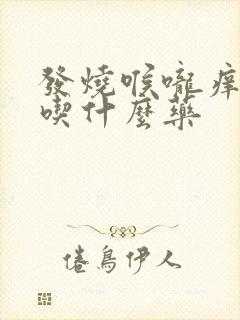 發燒喉嚨痒
喫什麼藥
倦鳥伊人